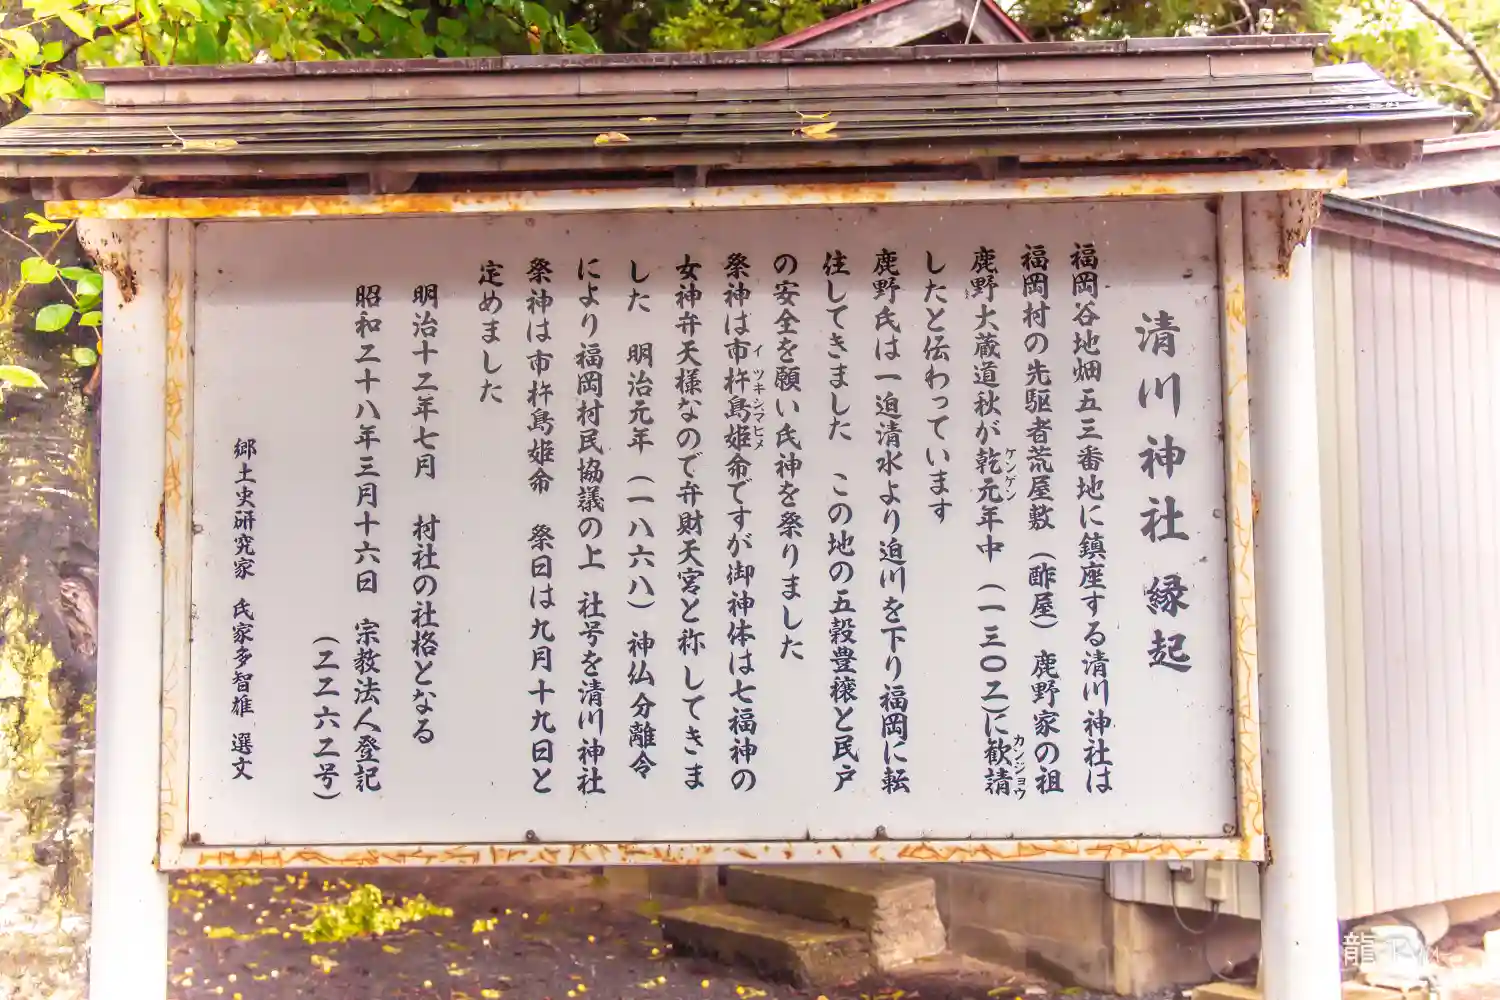 清川神社 縁起
福岡谷地畑五三番地に鎮座する清川神社は
福岡村の先駆者荒屋敷（酢屋）鹿野家の祖
鹿野大蔵道秋が乾元年中（一三〇二）に歓請
ケンゲン
カンジョウ
したと伝わっています
鹿野氏は一迫清水より迫川を下り福岡に転
住してきました この地の五穀豊穣と民戸
の安全を願い氏神を祭りました
祭神は市杵島姫命ですが御神体は七福神の
イツキシマヒメ
女神弁天様なので弁財天宮と称してきま
した 明治元年（一八六八）神仏分離令
により福岡村民協議の上 社号を清川神社
祭神は市杵島姫命 祭日は九月十九日と
定めました
明治十二年七月 村社の社格となる
昭和二十八年三月十六日 宗教法人登記
（二二六二号）
郷土史研究家 氏家多智雄 選文
龍